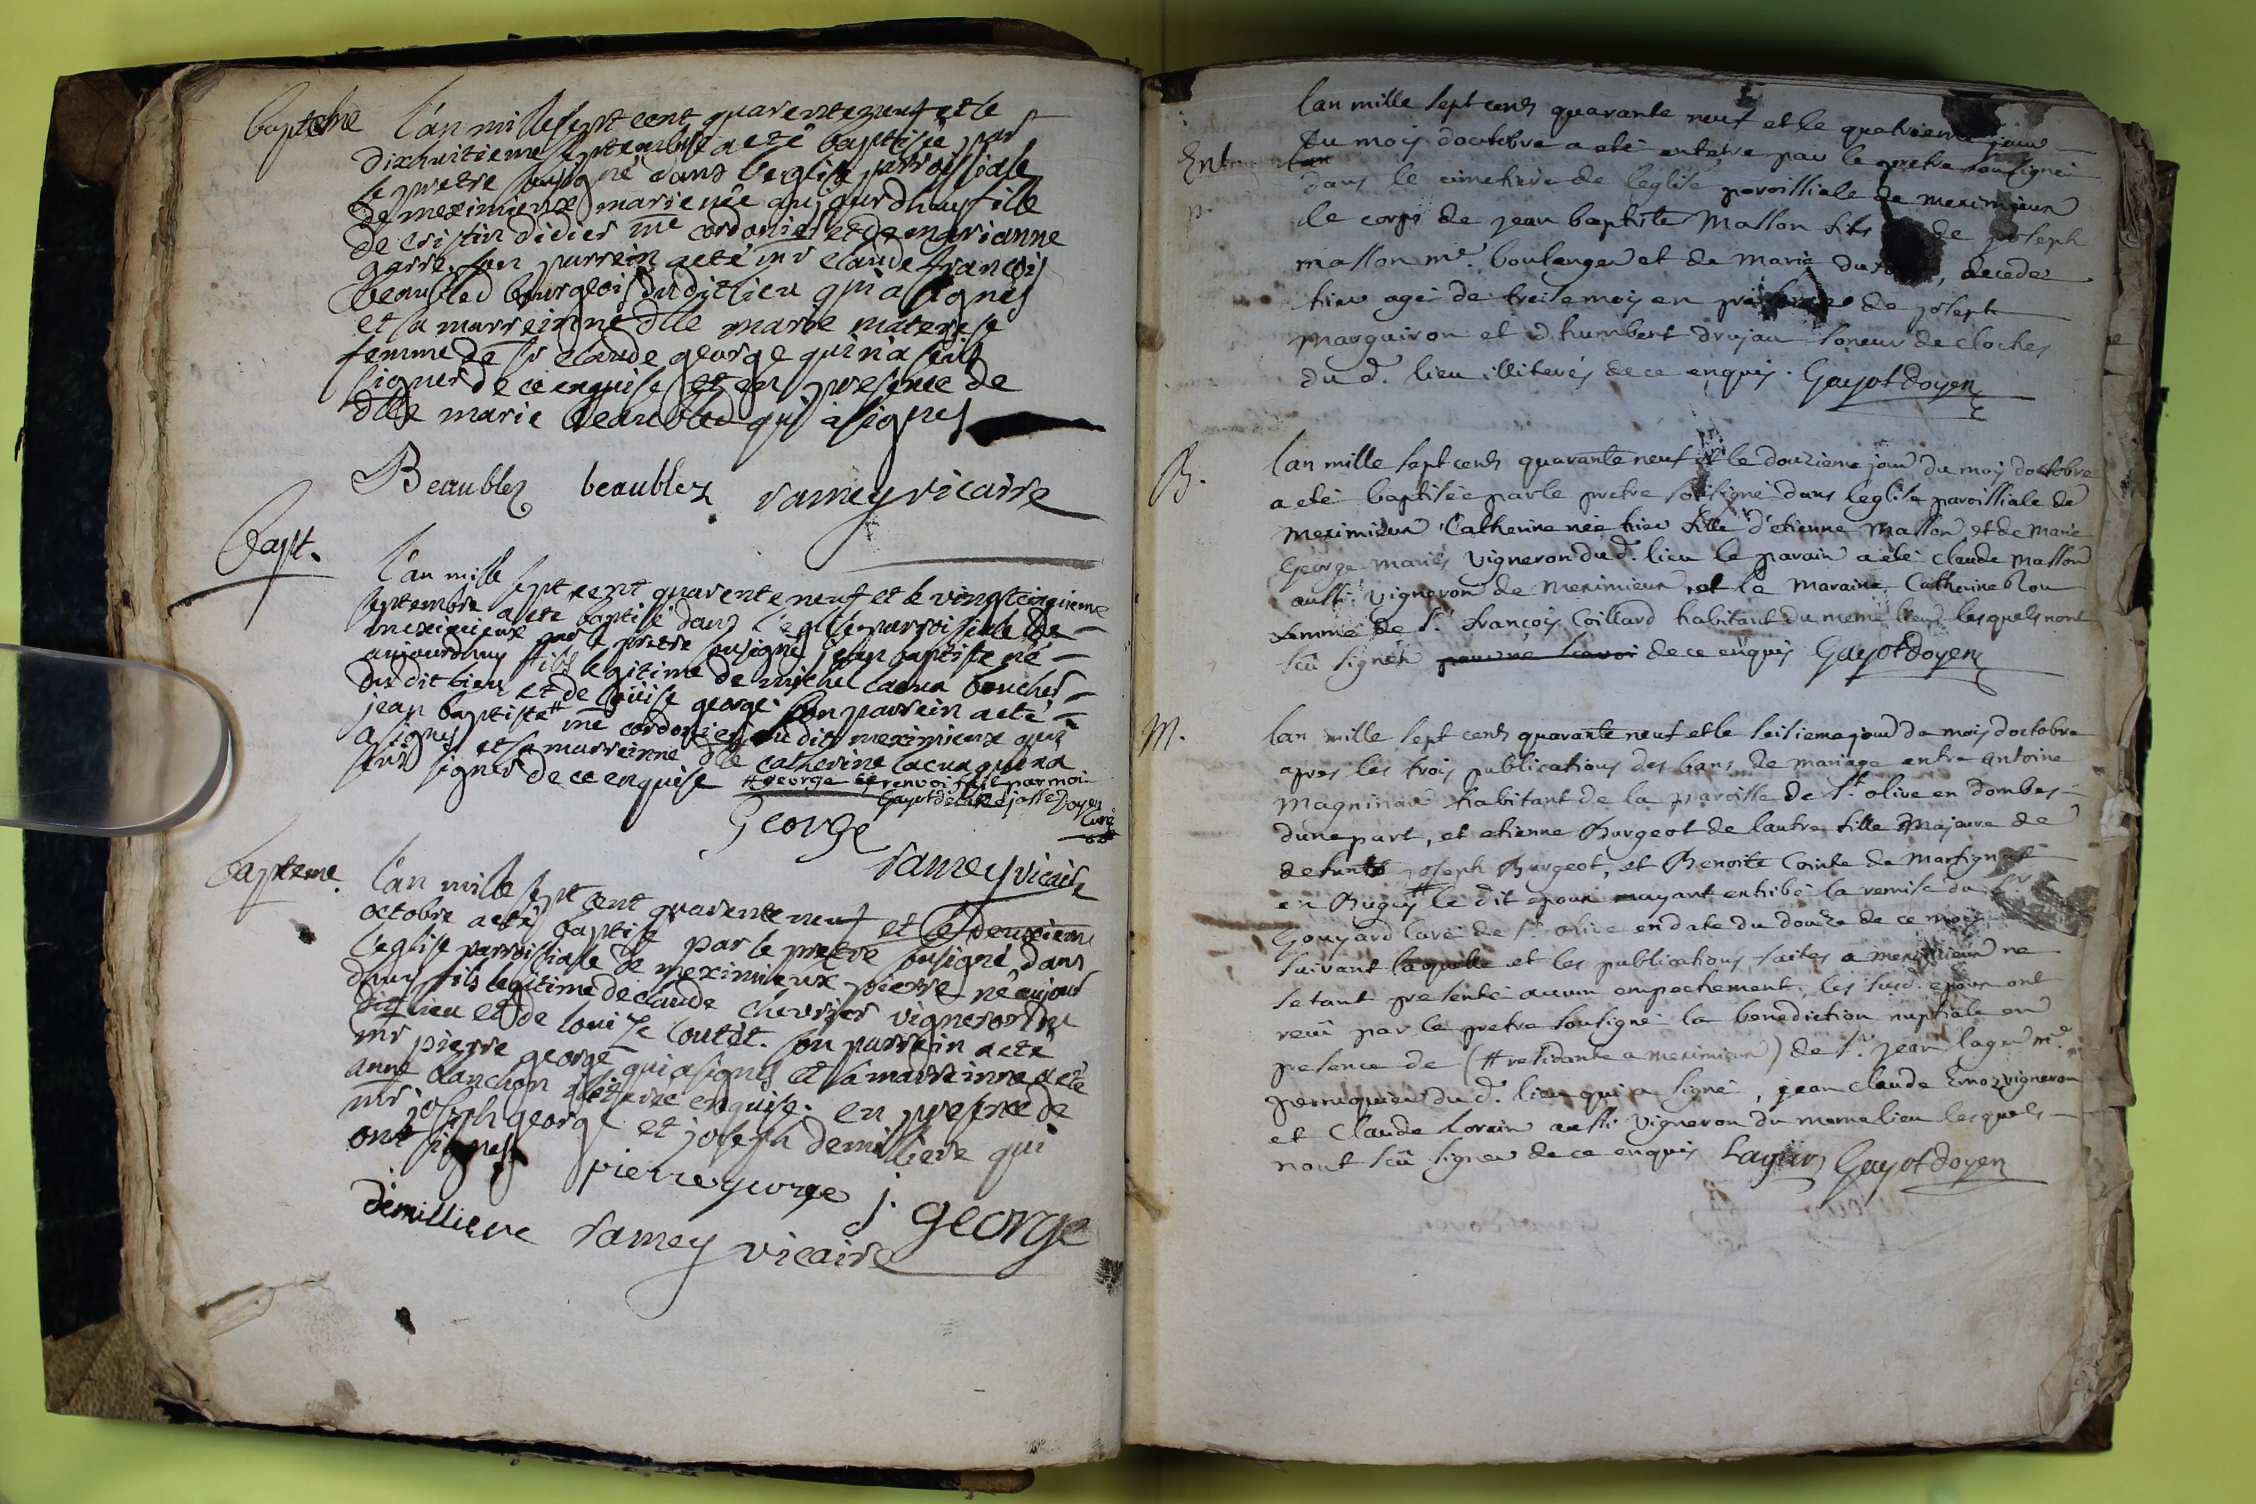 bapteme
L'an mille sept cent quarenteneuf et le
dixhuitieme septembre a eté baptisée par
le pretre sousigné dans l'eglise parroissiale
de meximieux marie née aujourdhuy fille
de cristin didier me cordonier et de marianne
garre. son parrein a eté mr claude françois
beaubled bourgeois dudit lieu qui a signés
et sa marreinne dlle marie
femme de sr claude george qui n'a sçüs
signer de ce enquise et en presence de
dlle marie beaubled qui a signes
Beaublez beaublez ramey vicaire
bapt.
L'an mille sept cent quarenteneuf et le vingtcinqieme
septembre a eté baptisé dans l'eglise parroissiale de
meximieux par le pretre sousigné jean baptiste né
aujourdhuy fils legitime de michel lacua boucher
dudit lieu et de louise george. son parrein a eté
jean baptiste # me cordonier dudit meximieux qui
a signes et sa marreinne dlle catherine lacua qui n'a
sçus signer de ce enquise # george le renvoi fait par moi
Gayot doyen
curé
George
ramey vicaire
bapteme.
L'an mille sept cent quarenteneuf et le deuxieme
octobre a eté baptisé par le pretre sousigné dans
l'eglise parroissiale de meximieux pierre né aujour
dhuy fils legitime de claude chevrier vigneron du
dit lieu et de louize coutet. son parrein a eté
mr pierre george qui a signes et sa marreinne a eté
anne blanchon enquise. en presence de
mr joseph george et joseph demilliere qui
ont signes.
pierre george j. george
demilliere ramey vicaire
lan mille sept cents quarante neuf et le quatrieme jour
Du mois doctobre a eté enterré par le pretre sousigné
dans le cimetiere de leglise paroissiale de meximieux
le corps de jean baptiste Masson fils de joseph
masson me. boulanger et de marie decedé
hier agé de treise mois en presence de joseph
margairon et dhumbert drujau soneur de cloches
du d. lieu illiterés de ce enquis. Gayot doyen
B.
lan mille sept cents quarante neuf et le douzieme jour du mois doctobre
a eté baptisée par le pretre sousigné dans leglise paroissiale de
meximieux Catherine née hier fille d'etienne Masson et de Marie
George mariés vigneron du d. lieu le parain a eté claude Masson
aussi vigneron de meximieux et la Maraine Catherine blou
femme de sr. françois Coillard habitant du meme lieu lesquels nont
sçû signer pour ne scavoir de ce enquis Gayot doyen
M.
lan mille sept cents quarante neuf et le seisieme jour du mois doctobre
apres les trois publications des bans de mariage entre antoine
Magninau habitant de la paroisse de st olive en dombes
dunepart, et etienne Burgeot de lautre fille Majeure de
defunts joseph Burgeot, et Benoite Cointe de Martignat
en Bugey # le dit epoux mayant exhibé la remise du Sr
Gouyard Curé de st olive en date du douze de ce mois
suivant laquelle et les publications faites a meximieux ne
setant presenté aucun empechement, les susd. epoux ont
reçû par le pretre sousigné la benediction nuptiale en
presence de (# residante a meximieux) de sr. jean lagu me.
perruquier du d. lieu qui a signé, jean claude Emoz vigneron
et Claude Lorain aussi vigneron du meme lieu lesquels
nont sçû signer de ce enquis Gayot doyen